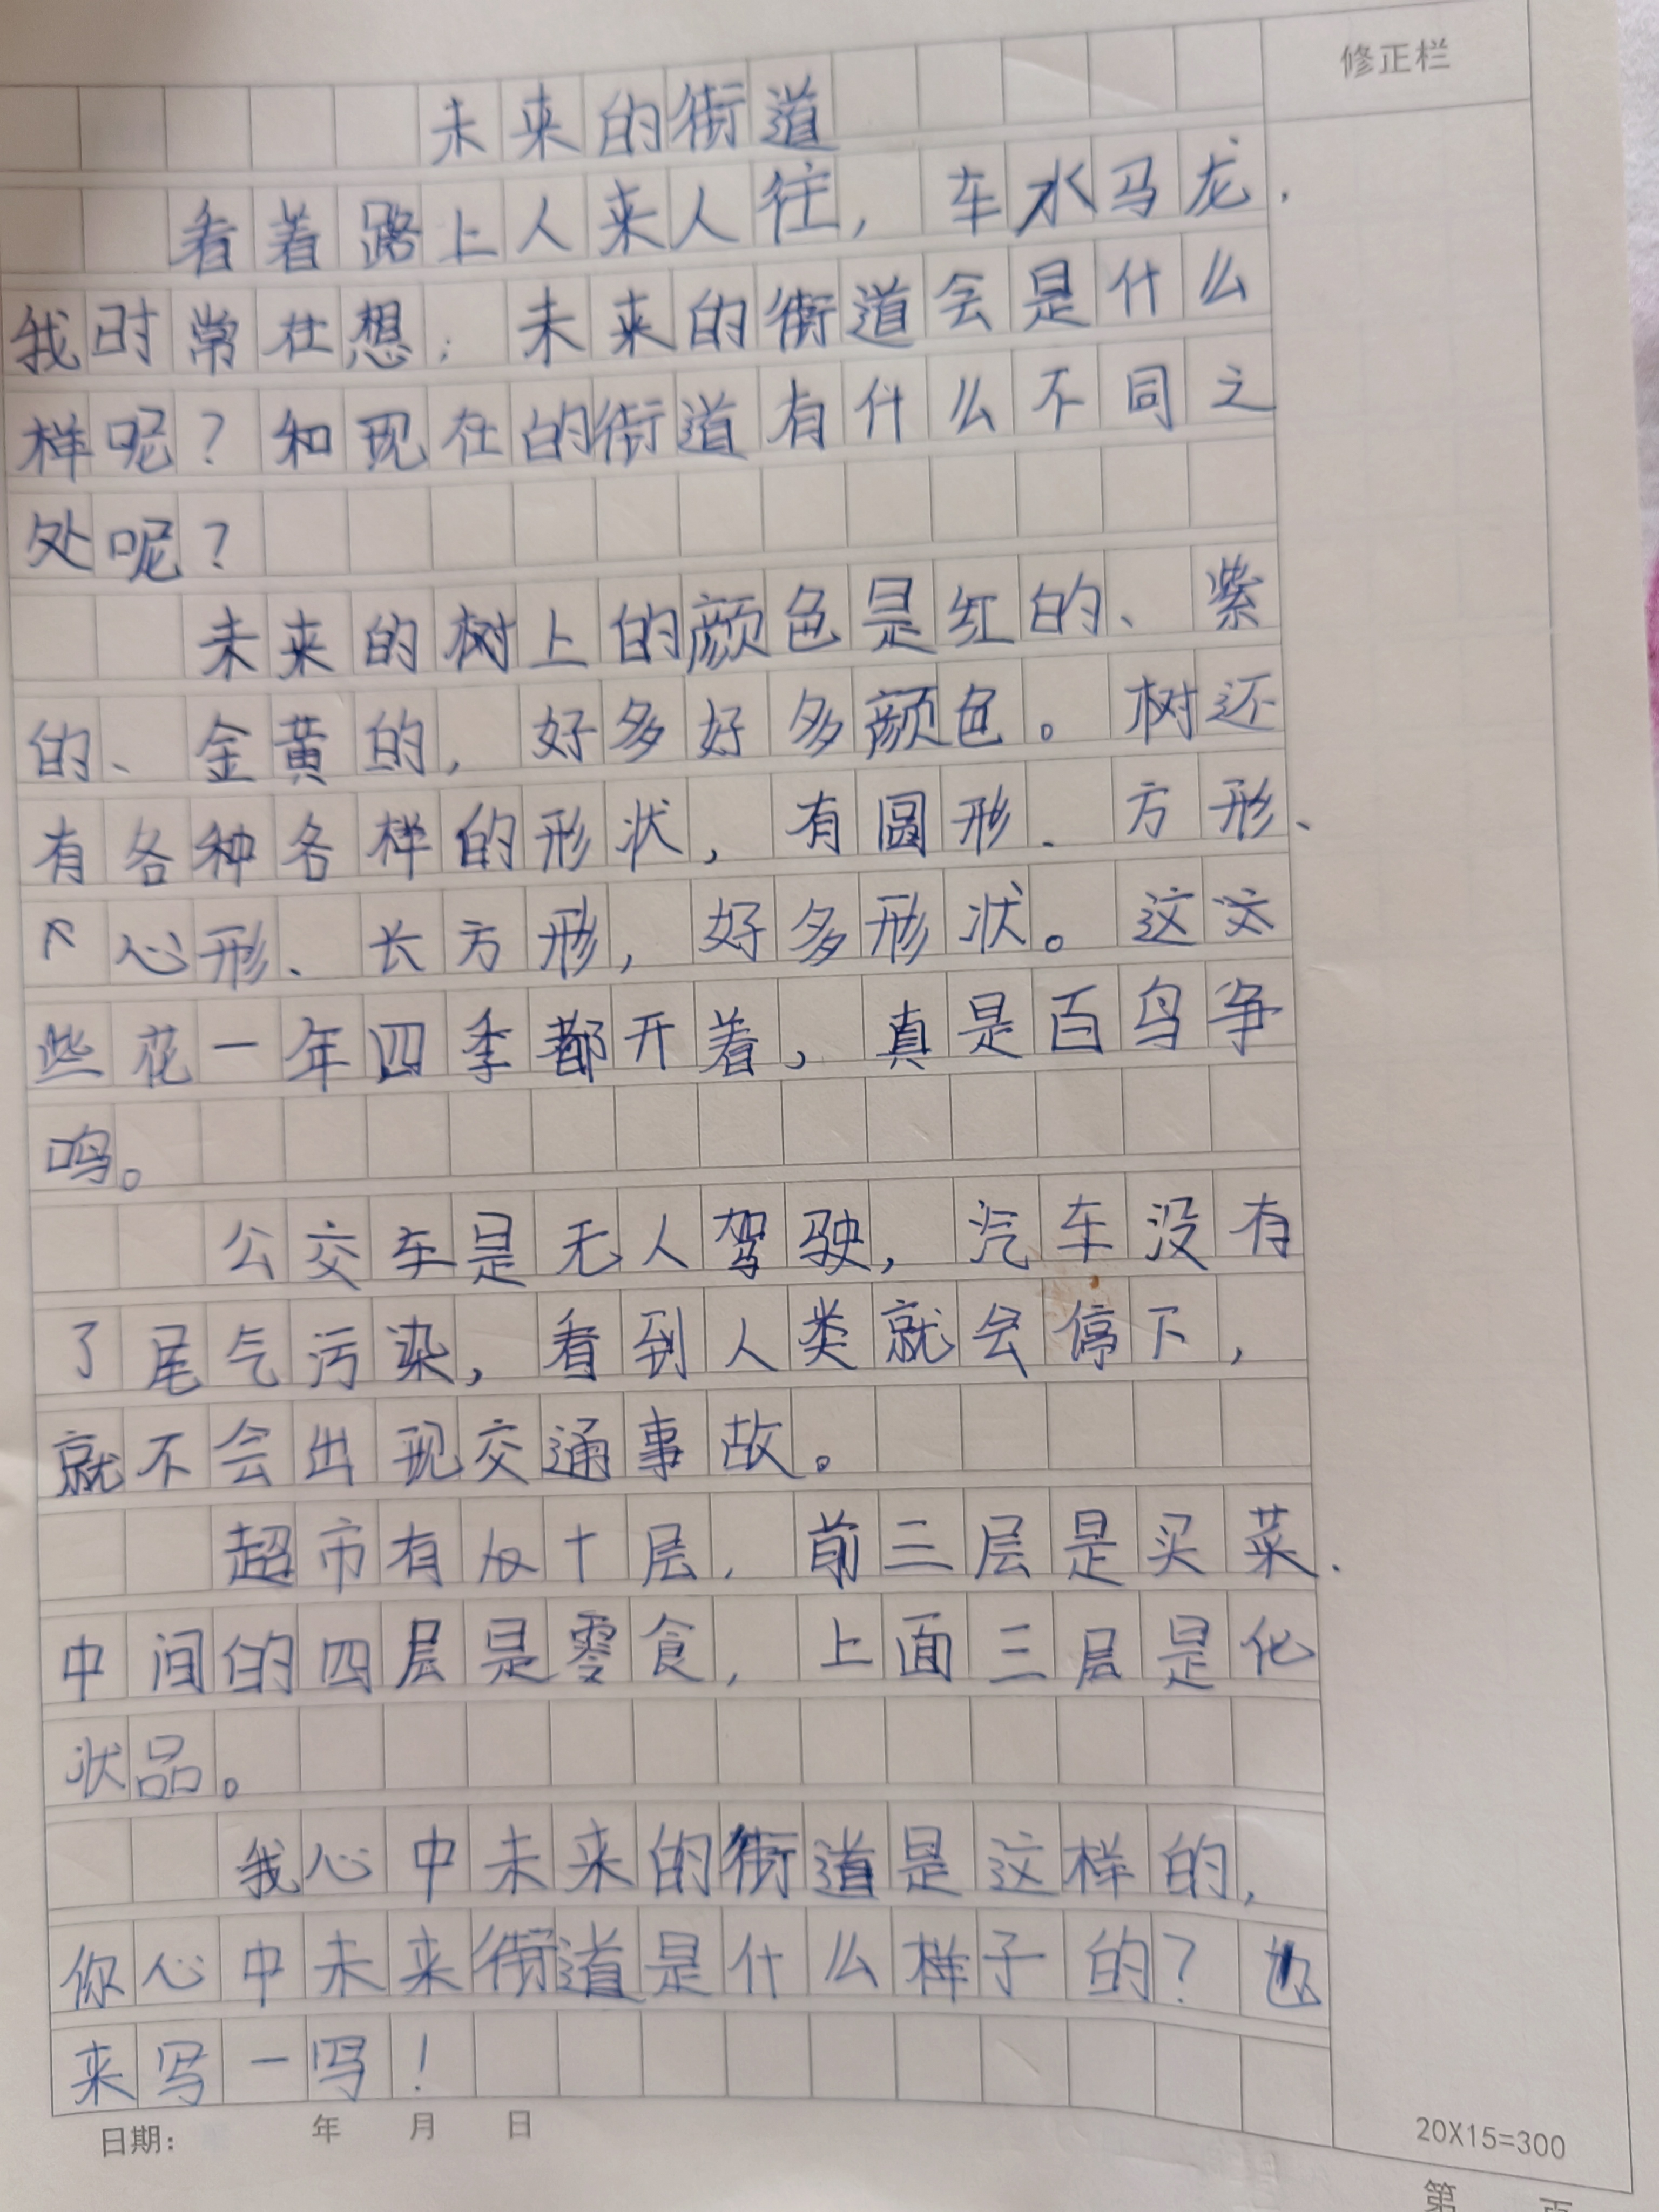 修正栏
未来的街道
看着路上人来人往，车水马龙．
我时常在想：未来的街道会是什么
样呢？和现在的街道有什么不同之
处呢？
未来的树上的颜色是红的、紫
的、金黄的，好多好多颜色。树还
有各种各样的形状，有圆形、方形、
心形、长方形，好多形状。这
些花一年四季都开着，真是百鸟争
鸣。
公交车是无人驾驶，汽车没有
了尾气污染，看到人类就会停下，
就不会出现交通事故。
超市有十层，前三层是买菜．
中间的四层是零食，上面三层是化
状品。
我心中未来的街道是这样的，
你心中未来街道是什么样子的？也
来写一写！
日期： 年 月 日
20X15=300
第 页